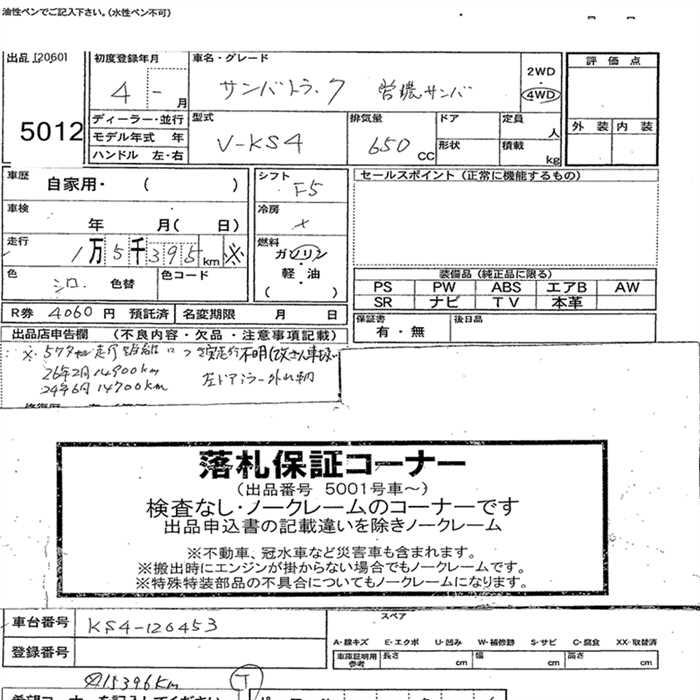 油性ペンでご記入下さい。(水性ペン不可)
出品 120601
5012
初度登録年月
4 - 月
車名・グレード
サンバトラック 営農サンバ
2WD
4WD
評価点
外装 内装
ディーラー・並行
モデル年式 年
ハンドル 左・右
型式
V-KS4
排気量
650 CC
ドア
形状
定員
人
積載
kg
車歴
自家用・( )
シフト
F5
セールスポイント (正常に機能するもの)
車検
年 月( 日)
冷房
×
走行
1万5千395km ※
燃料
ガソリン
軽・油
( )
色
シロ 色替
色コード
装備品(純正品に限る)
PS PW ABS エアB AW
SR ナビ TV 本革
R券 4060円 預託済 名変期限 月 日
保証書
有・無
後日品
出品店申告欄 (不良内容・欠品・注意事項記載)
26年2月 14900km
24年6月 14700km
左ドアミラー
落札保証コーナー
(出品番号 5001号車~)
検査なし・ノークレームのコーナーです
出品申込書の記載違いを除きノークレーム
※不動車、冠水車など災害車も含まれます。
※搬出時にエンジンが掛からない場合でもノークレームです。
※特殊特装部品の不具合についてもノークレームになります。
車台番号 KS4-120453
登録番号
スペア
A-線キズ E-エクボ U-凹み W-補修跡 S-サビ C-腐食 XX-取替済
車庫証明用
参考
長さ cm 幅 cm 高さ cm
15396km
T
希望コーナーを記入してください